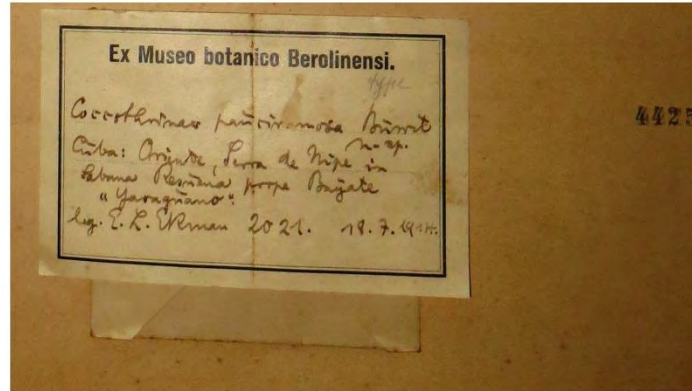 Ex Museo botanico Berolinensi.
type
Coccothrinax pauciramosa Burret
n. sp.
Cuba: Oriente, Serra de Nipe in
Sabana prope Bayate
"Yaraguano".
leg. E. L. Ekman 2021. 18. 7. 1914.
4425